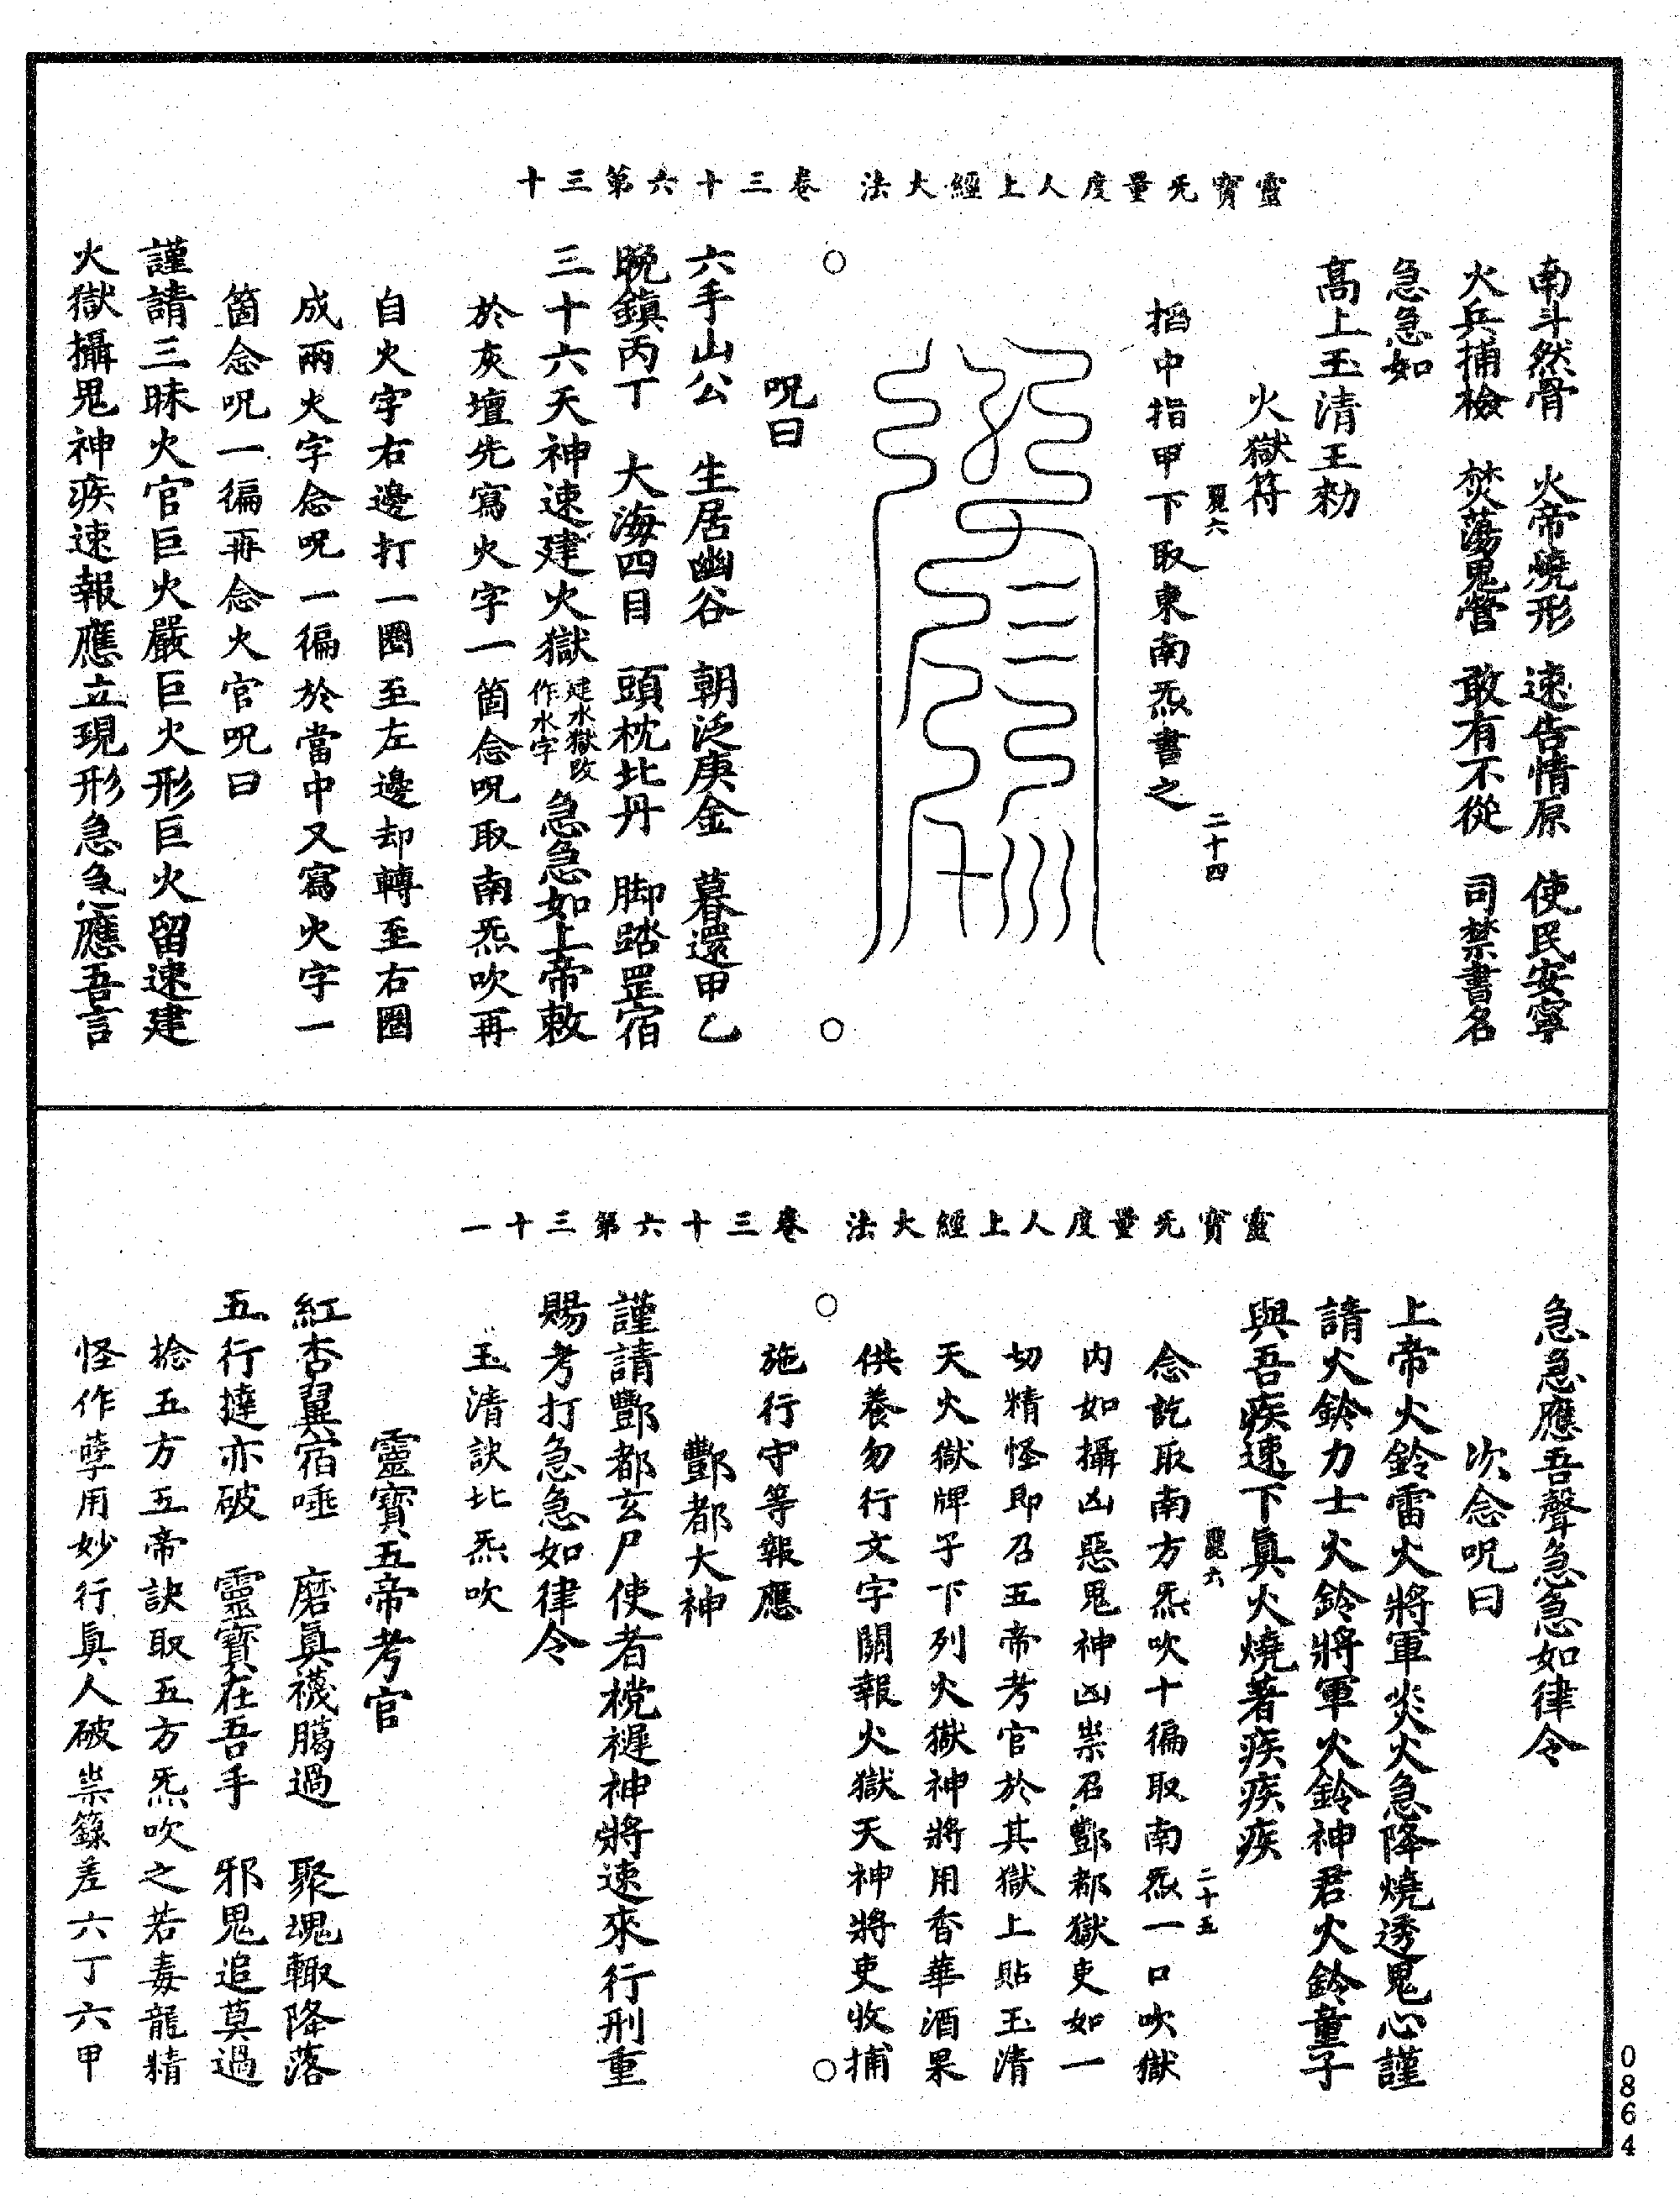 靈寶无量度人上經大法　卷三十六第三十
南斗然骨　火帝燒形　速告情原　使民安寧
火兵捕檢　焚蕩鬼營　敢有不從　司禁書名
急急如
髙上玉清王勑
火獄符
二十四
搯中指甲下取東南炁書之
呪曰
六手山公　生居幽谷　朝泛庚金　暮還甲乙
晩鎮丙丁　大海四目　頭枕北丹　脚踏罡宿
三十六天神速建火獄建水獄改作水字急急如上帝敕
於灰壇先寫火字一箇念呪取南炁吹再
自火字右邊打一圈至左邊却轉至右圈
成兩火字念呪一徧於當中又寫火字一
箇念呪一徧再念火官呪曰
謹請三昧火官巨火嚴巨火形巨火留速建
火獄攝鬼神疾速報應立現形急急應吾言
靈寶无量度人上經大法　卷三十六第三十一
急急應吾聲急急如律令
次念呪曰
上帝火鈴雷火將軍炎火急降燒透鬼心謹
請火鈴力士火鈴將軍火鈴神君火鈴童子
與吾疾速下眞火燒著疾疾疾
二十五
念訖取南方炁吹十徧取南炁一口吹獄
内如攝凶惡鬼神凶祟召酆都獄吏如一
切精怪即召五帝考官於其獄上貼玉清
天火獄牌子下列火獄神將用香華酒果
供養勿行文字關報火獄天神將吏收捕
施行守等報應
酆都大神
謹請酆都玄尸使者樘褪神將速來行刑重
賜考打急急如律令
玉清訣北炁吹
靈寶五帝考官
紅杏翼宿唾　磨眞襪臈過　聚塊輙降落
五行撻亦破　靈寶在吾手　邪鬼追莫過
捻五方五帝訣取五方炁吹之若毒龍精
怪作孽用妙行眞人破祟籙差六丁六甲
0864